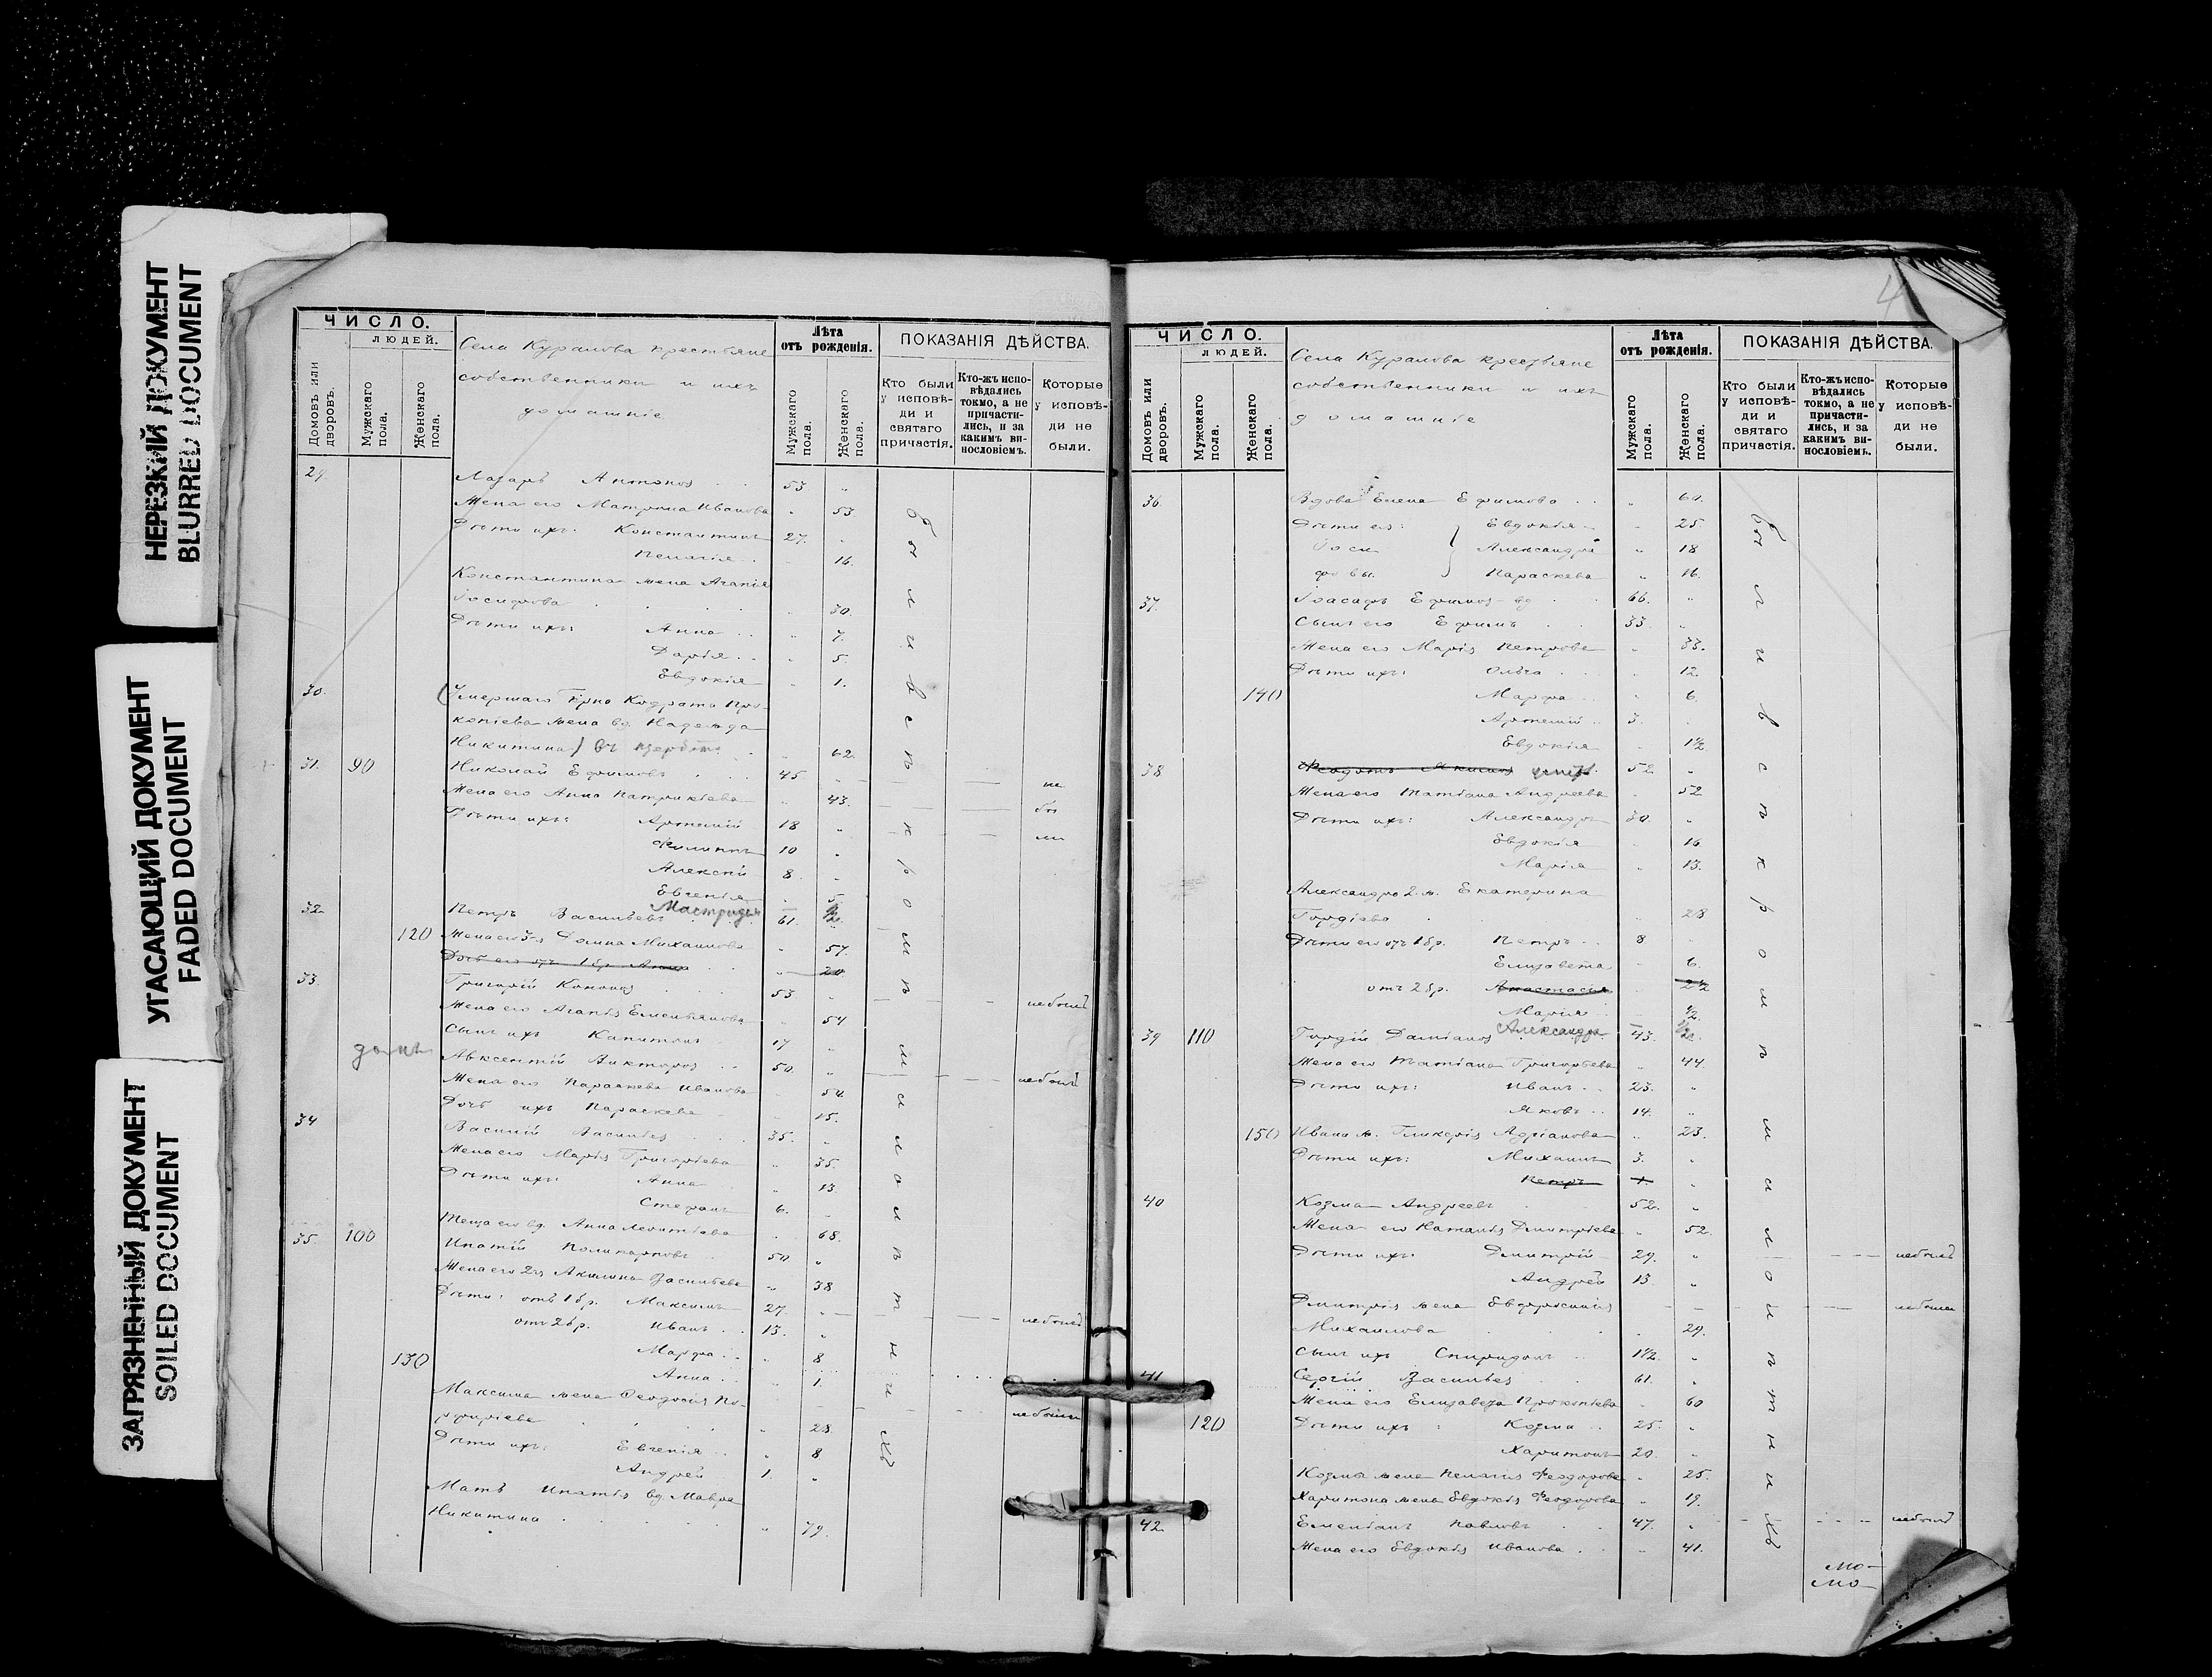 НЕРЕЗКИЙ ДОКУМЕНТ
BLURRED DOCUMENT
УГАСАЮЩИЙ ДОКУМЕНТ
FADED DOCUMENT
ЗАГРЯЗНЕННЫЙ ДОКУМЕНТ
SOILED DOCUMENT
ЧИСЛО.
людей.
Домовъ или дворовъ.
Мужскаго пола.
Женскаго пола.
Села Курапова крестьяне
собственники и ихъ
домашніе
Лѣта
отъ рожденія.
Мужскаго пола.
Женскаго пола.
ПОКАЗАНІЯ ДѢЙСТВА.
Кто были у исповѣди и святаго причастія.
Кто-жъ исповѣдались токмо, а не причастились, и за какимъ винословіемъ.
Которые у исповѣди не были.
29. Лазарь Антонов 53 "
Жена его Матрона Иванова " 53.
Дѣти ихъ: Константинъ 27. "
Пелагія 16.
Константина жена Агапія
Іосифова 30.
Дѣти ихъ: Анна " 7.
Дарія " 5.
Евдокія " 1.
30. (Умершаго Кодрата Про-
копіева жена вд. Надежда
Никитина) " 62.
31. 90 Николай Ефимовъ 45 " не
Жена его Анна Патрикіева " 43. бы
Дѣти ихъ: Артемій 18 " ли
Филиппъ 10 "
Алексій 8. "
Евгенія " 5
32. Петръ Васильевъ 61.
120 Жена его 3-я Домна Михаилова " 57.
Дочь его отъ 1 бр. Анна " 20
33. Григорій Кононов 53. " не былъ
Жена его Агапія Емельянова " 54
Сынъ ихъ Капитонъ 17 "
Авксентій Викторов 50. " не былъ
Жена его Параскева Иванова 54.
Дочь ихъ Параскева 15.
34 Василій Васильев 35. "
Жена его Марія Григоріева " 35.
Дѣти ихъ: Анна " 13
Стефанъ 6. "
Теща его вд. Анна Леонтіева " 68.
35. 100 Ипатій Поликарповъ 50. "
Жена его 2-я Акилина Васильева " 38
Дѣти: отъ 1 бр. Максимъ 27. " не былъ
отъ 2 бр. Иванъ 13. "
130 Марфа " 8
Анна " 1.
Максима жена Феодосія По-
рфиріева " 28 не была
Дѣти ихъ: Евгенія " 8
Андрей 1. "
Мать Ипатія вд. Мавра
Никитина " 79.
были в с ѣ к р о м ѣ м а л о л ѣ т н и хъ
4
ЧИСЛО.
людей.
Домовъ или дворовъ.
Мужскаго пола.
Женскаго пола.
Села Курапова крестьяне
собственники и ихъ
домашніе
Лѣта
отъ рожденія.
Мужскаго пола.
Женскаго пола.
ПОКАЗАНІЯ ДѢЙСТВА.
Кто были у исповѣди и святаго причастія.
Кто-жъ исповѣдались токмо, а не причастились, и за какимъ винословіемъ.
Которые у исповѣди не были.
36. Вдова Елена Ефимова " 60.
Дѣти ея: Евдокія " 25
Іоси Александра " 18
фовы. Параскева " 16.
37. Іоасафъ Ефимов вд 66. "
Сынъ его Ефимъ 33. "
Жена его Марія Петрова " 33.
Дѣти ихъ: Ольга " 12
140 Марфа " 6.
Артемій 3.
Евдокія 1½
38 Феодотъ 52 "
Жена его Татіана Андреева " 52
Дѣти ихъ: Александръ 30. "
Евдокія " 16
Марія " 13.
Александра 2. ж. Екатерина
Гордіева 28
Дѣти его отъ 1 бр. Петръ 8
Елизавета 6.
отъ 2 бр. Анастасія 2½
Марія ½
Александра
39 110 Гордій Даміанов 43.
Жена его Татіана Григорьева " 44.
Дѣти ихъ: Иванъ 23. "
Яковъ 14. "
150 Ивана ж. Гликерія Адріанова " 23.
Дѣти ихъ: Михаилъ 3. "
Петръ 1. "
40 Козма Андреевъ 52. "
Жена его Наталія Дмитріева " 52.
Дѣти ихъ: Дмитрій 29. " не былъ
Андрей 13. "
Дмитрія жена Евфросинія не была
Михаилова 29.
Сынъ ихъ Спиридонъ 1½. "
41 Сергій Васильев 61. "
Жена его Елизавета Прокопіева 60
120 Дѣти ихъ: Козма 25. "
Харитонъ 20. "
Козмы жена Пелагія Феодорова " 25.
Харитона жена Евдокія Феодорова " 19.
42. Емеліанъ Павловъ 47. " не былъ
Жена его Евдокія Иванова " 41.
были в с ѣ к р о м ѣ м а л о л ѣ т н и хъ